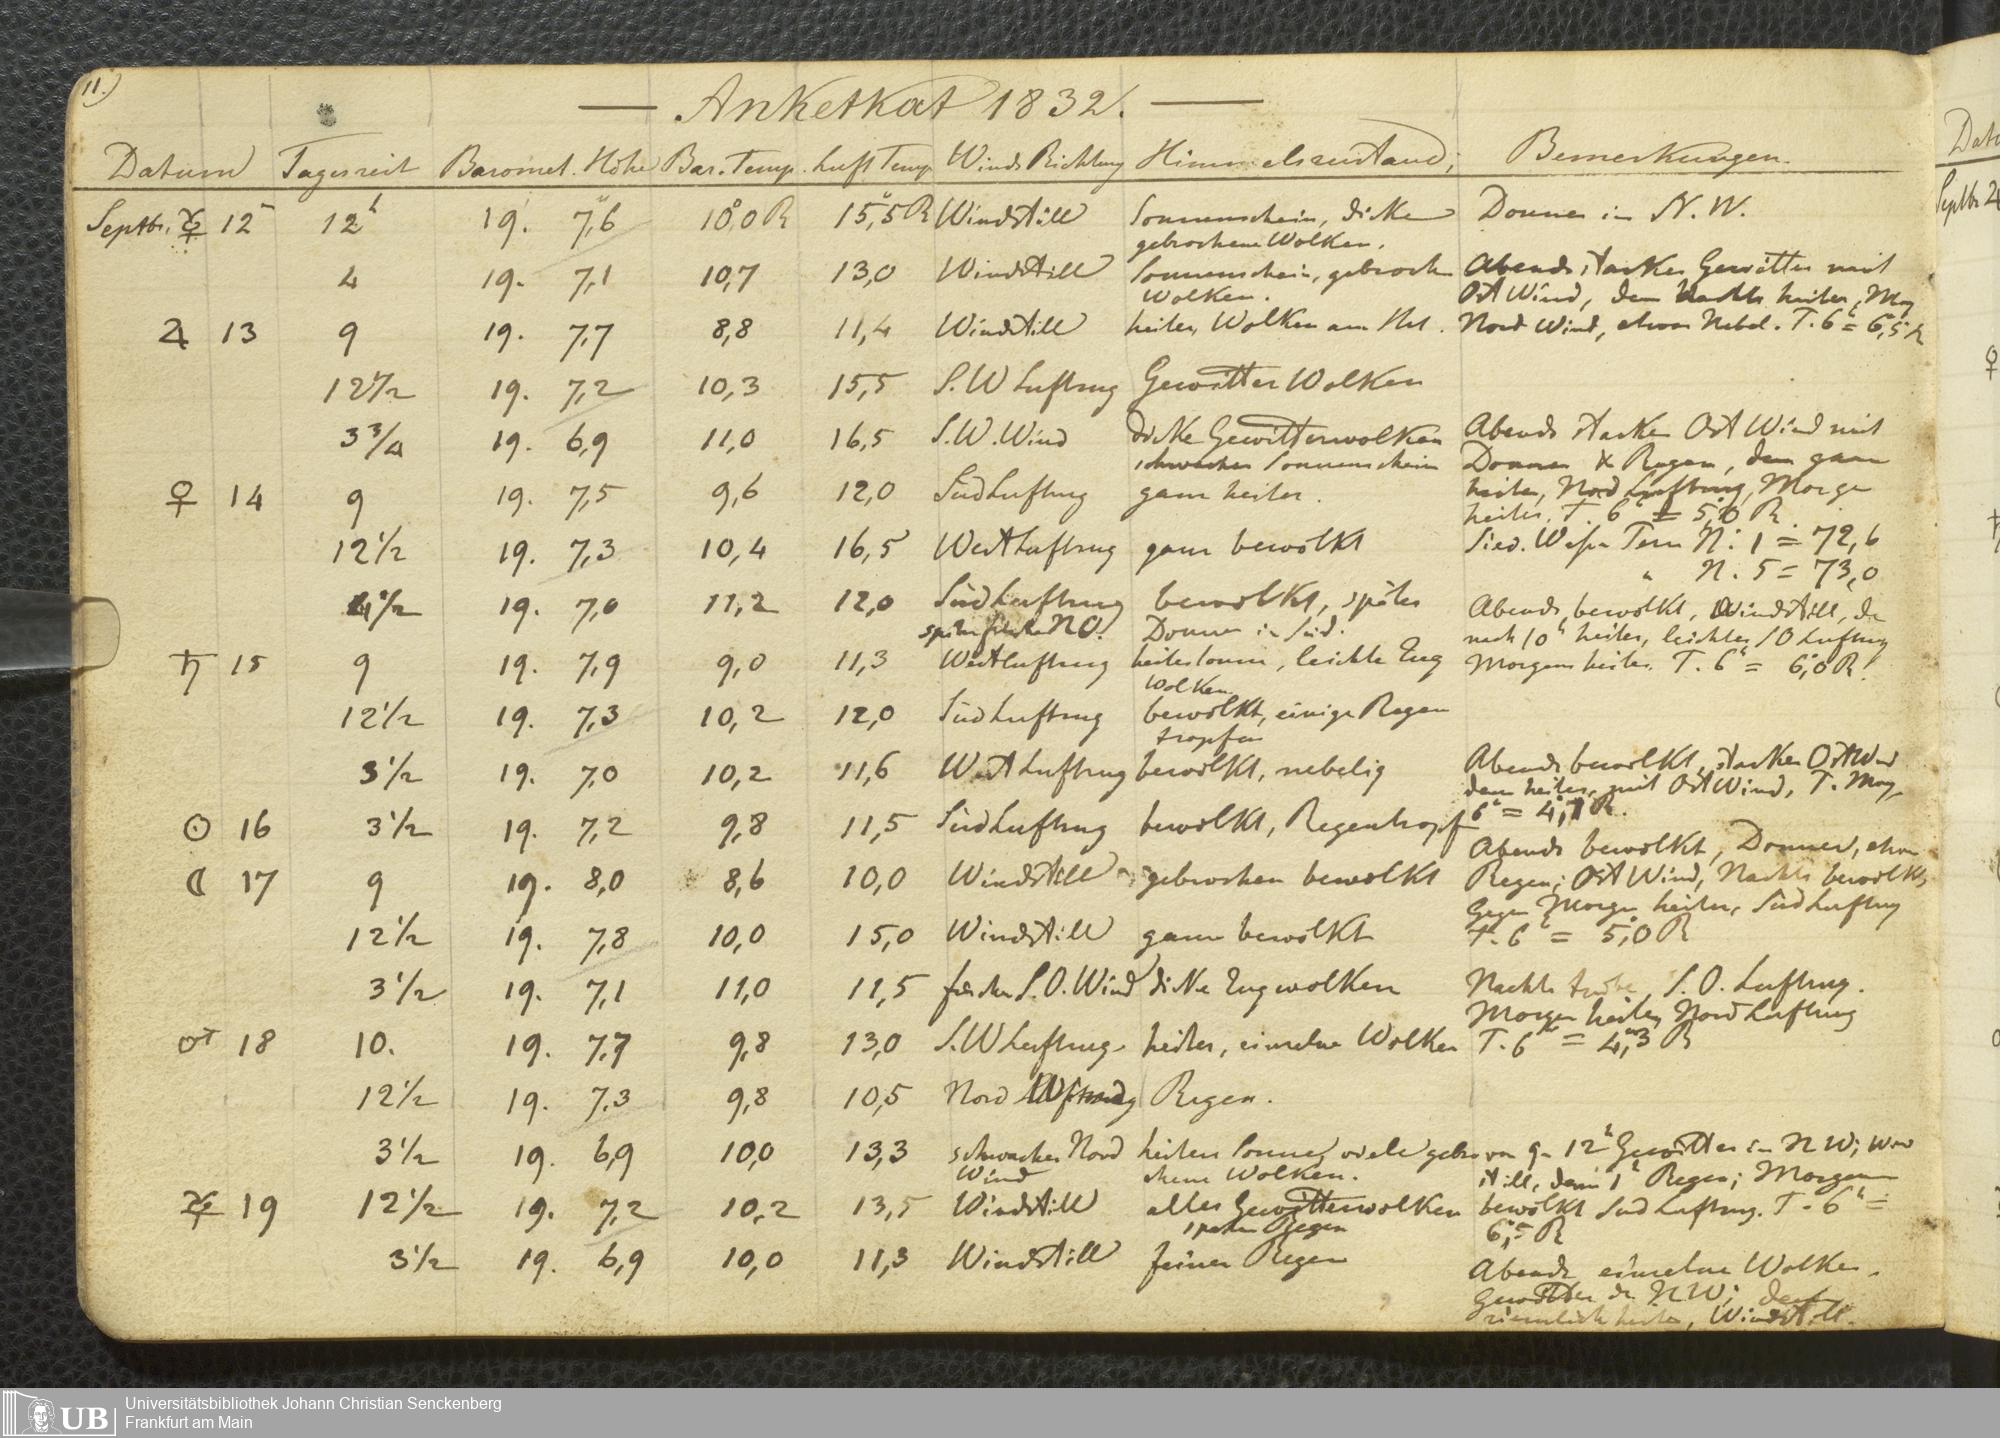 11.)
— Anketkat 1832. —
Datum Tageszeit Baromet. Höhe Bar. Temp. Luft Temp. Winds Richtung Himmelszustand; Bemerkungen.
Septbr. ☿ 12 12h 19. 7,6 10,0 R 15,5 R Windstill Sonnenschein, dicke Donner in N.W.
gebrochene Wolken.
4 19. 7,1 10,7 13,0 Windstill Sonnenschein, gebroch Abends starkes Gewitter mit
Wolken. Ost Wind, dann Nachts heiter, Morg
♃ 13 9 19. 7,7 8,8 11,4 Windstill heiter, Wolken am Hrt. Nord Wind, etwas Nebel. T. 6h = 6,5 R
12 1/2 19. 7,2 10,3 15,5 S.W Luftzug Gewitter Wolken
3 3/4 19. 6,9 11,0 16,5 S.W. Wind dicke Gewitterwolken Abends starken Ost Wind mit
schwacher Sonnenschein Donner & Regen, dann ganz
♀ 14 9 19. 7,5 9,6 12,0 Süd Luftzug ganz heiter. heiter, Nord Luftzug, Morge
heiter. T. 6h = 5,0 R.
12 1/2 19. 7,3 10,4 16,5 West Luftzug ganz bewölkt Sied. Wasser Tem N. 1 = 72,6
" N. 5 = 73,0
4 1/2 19. 7,0 11,2 12,0 Süd Luftzug bewölkt, später Abends bewölkt, Windstill, da
später frischer NO. Donner in Süd. nach 10h heiter, leichter SO Luftzug
♄ 15 9 19. 7,9 9,0 11,3 West Luftzug heitersonn, leichte Zug Morgens heiter. T. 6h = 6,0 R.
Wolken.
12 1/2 19. 7,3 10,2 12,0 Süd Luftzug bewölkt, einige Regen
tropfen
3 1/2 19. 7,0 10,2 11,6 West Luftzug bewölkt, nebelig Abends bewölkt, starken Ostwind
dann heiter, mit Ost Wind, T. Morg.
☉ 16 3 1/2 19. 7,2 9,8 11,5 Süd Luftzug bewölkt, Regentropf 6h = 4,1 R.
Abends bewölkt, Donner, etwas
☾ 17 9 19. 8,0 8,6 10,0 Windstill gebrochen bewölkt Regen; Ost Wind, Nachts bewölkt,
Gegen Morgen heiter, Süd Luftzug
12 1/2 19. 7,8 10,0 15,0 Windstill ganz bewölkt T. 6h = 5,0 R
3 1/2 19. 7,1 11,0 11,5 frischer S.O. Wind dicke Zugwolken Nachts trübe, S.O. Luftzug.
Morgen heiter, Nord Luftzug
♂ 18 10. 19. 7,7 9,8 13,0 S.W Luftzug heiter, einzelne Wolken T. 6h = 4,3 R
12 1/2 19. 7,3 9,8 10,5 Nord Regen.
3 1/2 19. 6,9 10,0 13,3 schwacher Nord heitere Sonne, viele gebro von 9-12h Gewitter in NW; Wind
Wind chene Wolken. still, dann 1h Regen; Morgens
☿ 19 12 1/2 19. 7,2 10,2 13,5 Windstill alles Gewitterwolken bewölkt Süd Luftzug. T. 6h =
später Regen 6,5 R
3 1/2 19. 6,9 10,0 11,3 Windstill feiner Regen Abends einzelne Wolken.
Gewitter in NW; dann
ziemlich heiter, Windstill.
Datu
Septbr 2
♀
UB
Universitätsbibliothek Johann Christian Senckenberg
Frankfurt am Main